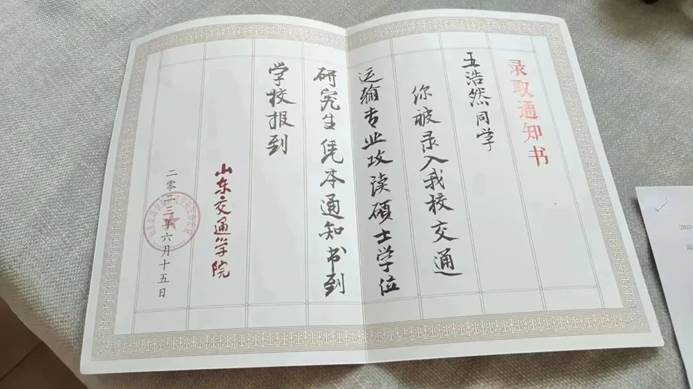 录取通知书
王浩然同学
你被录入我校交通
运输专业攻读硕士学位
研究生凭本通知书到
学校报到
山东交通学院
二零二三年六月十五日